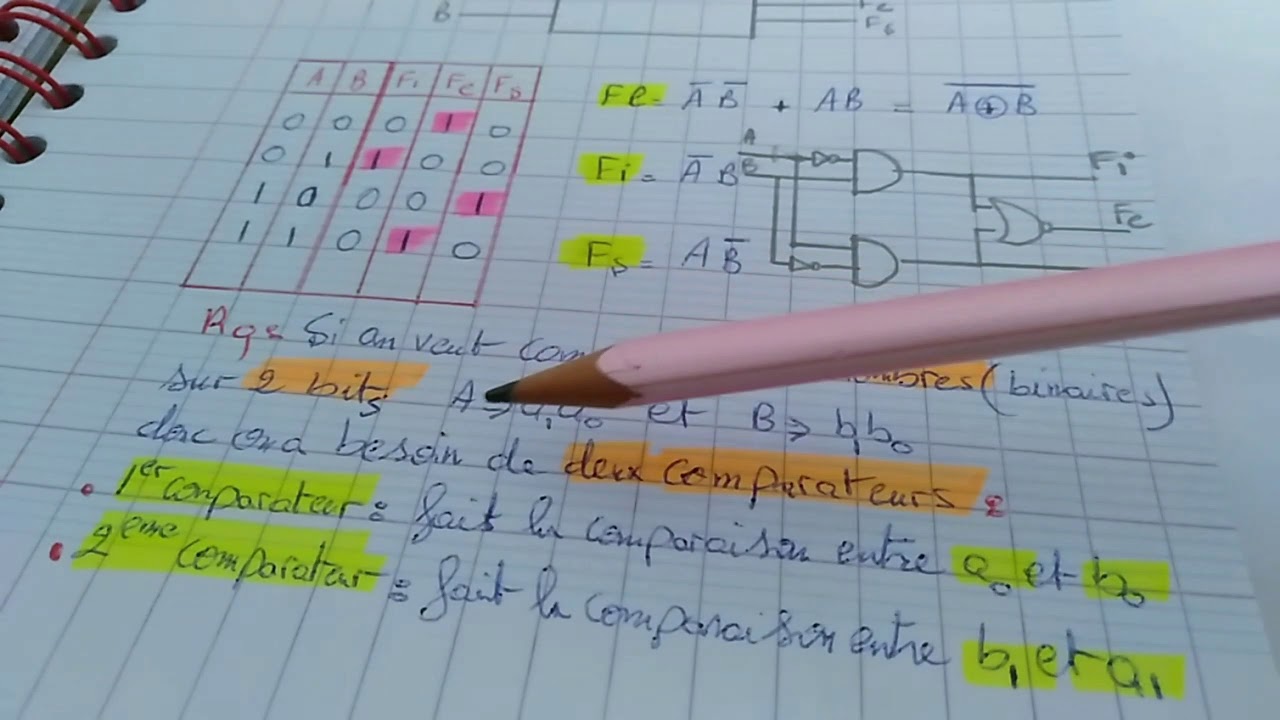 B
Fe
Fs
A B Fi Fe Fs
0 0 0 1 0
0 1 1 0 0
1 0 0 0 1
1 1 0 1 0
Fe = A̅ B̅ + AB = \overline{A⊕B}
Fi = A̅ B
Fs = A B̅
A
B
Fi
Fe
Rq: Si on veut com
sur 2 bits A → a₁a₀ et B → b₁b₀
mbres (binaires)
donc on a besoin de deux comparateurs :
• 1er comparateur : fait la comparaison entre a₀ et b₀
• 2eme comparateur : fait la comparaison entre b₁ et a₁